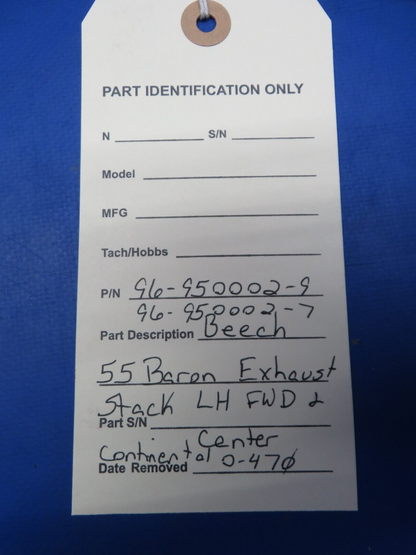 PART IDENTIFICATION ONLY
N S/N
Model
MFG
Tach/Hobbs
P/N 96-950002-9
96-950002-7
Part Description Beech
55 Baron Exhaust
Stack LH FWD &
Part S/N
Center
Continental O-470
Date Removed